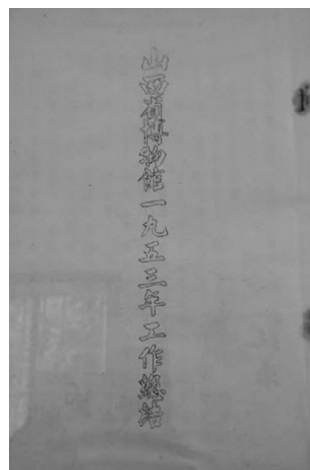 山西省博物館一九五三年工作總結